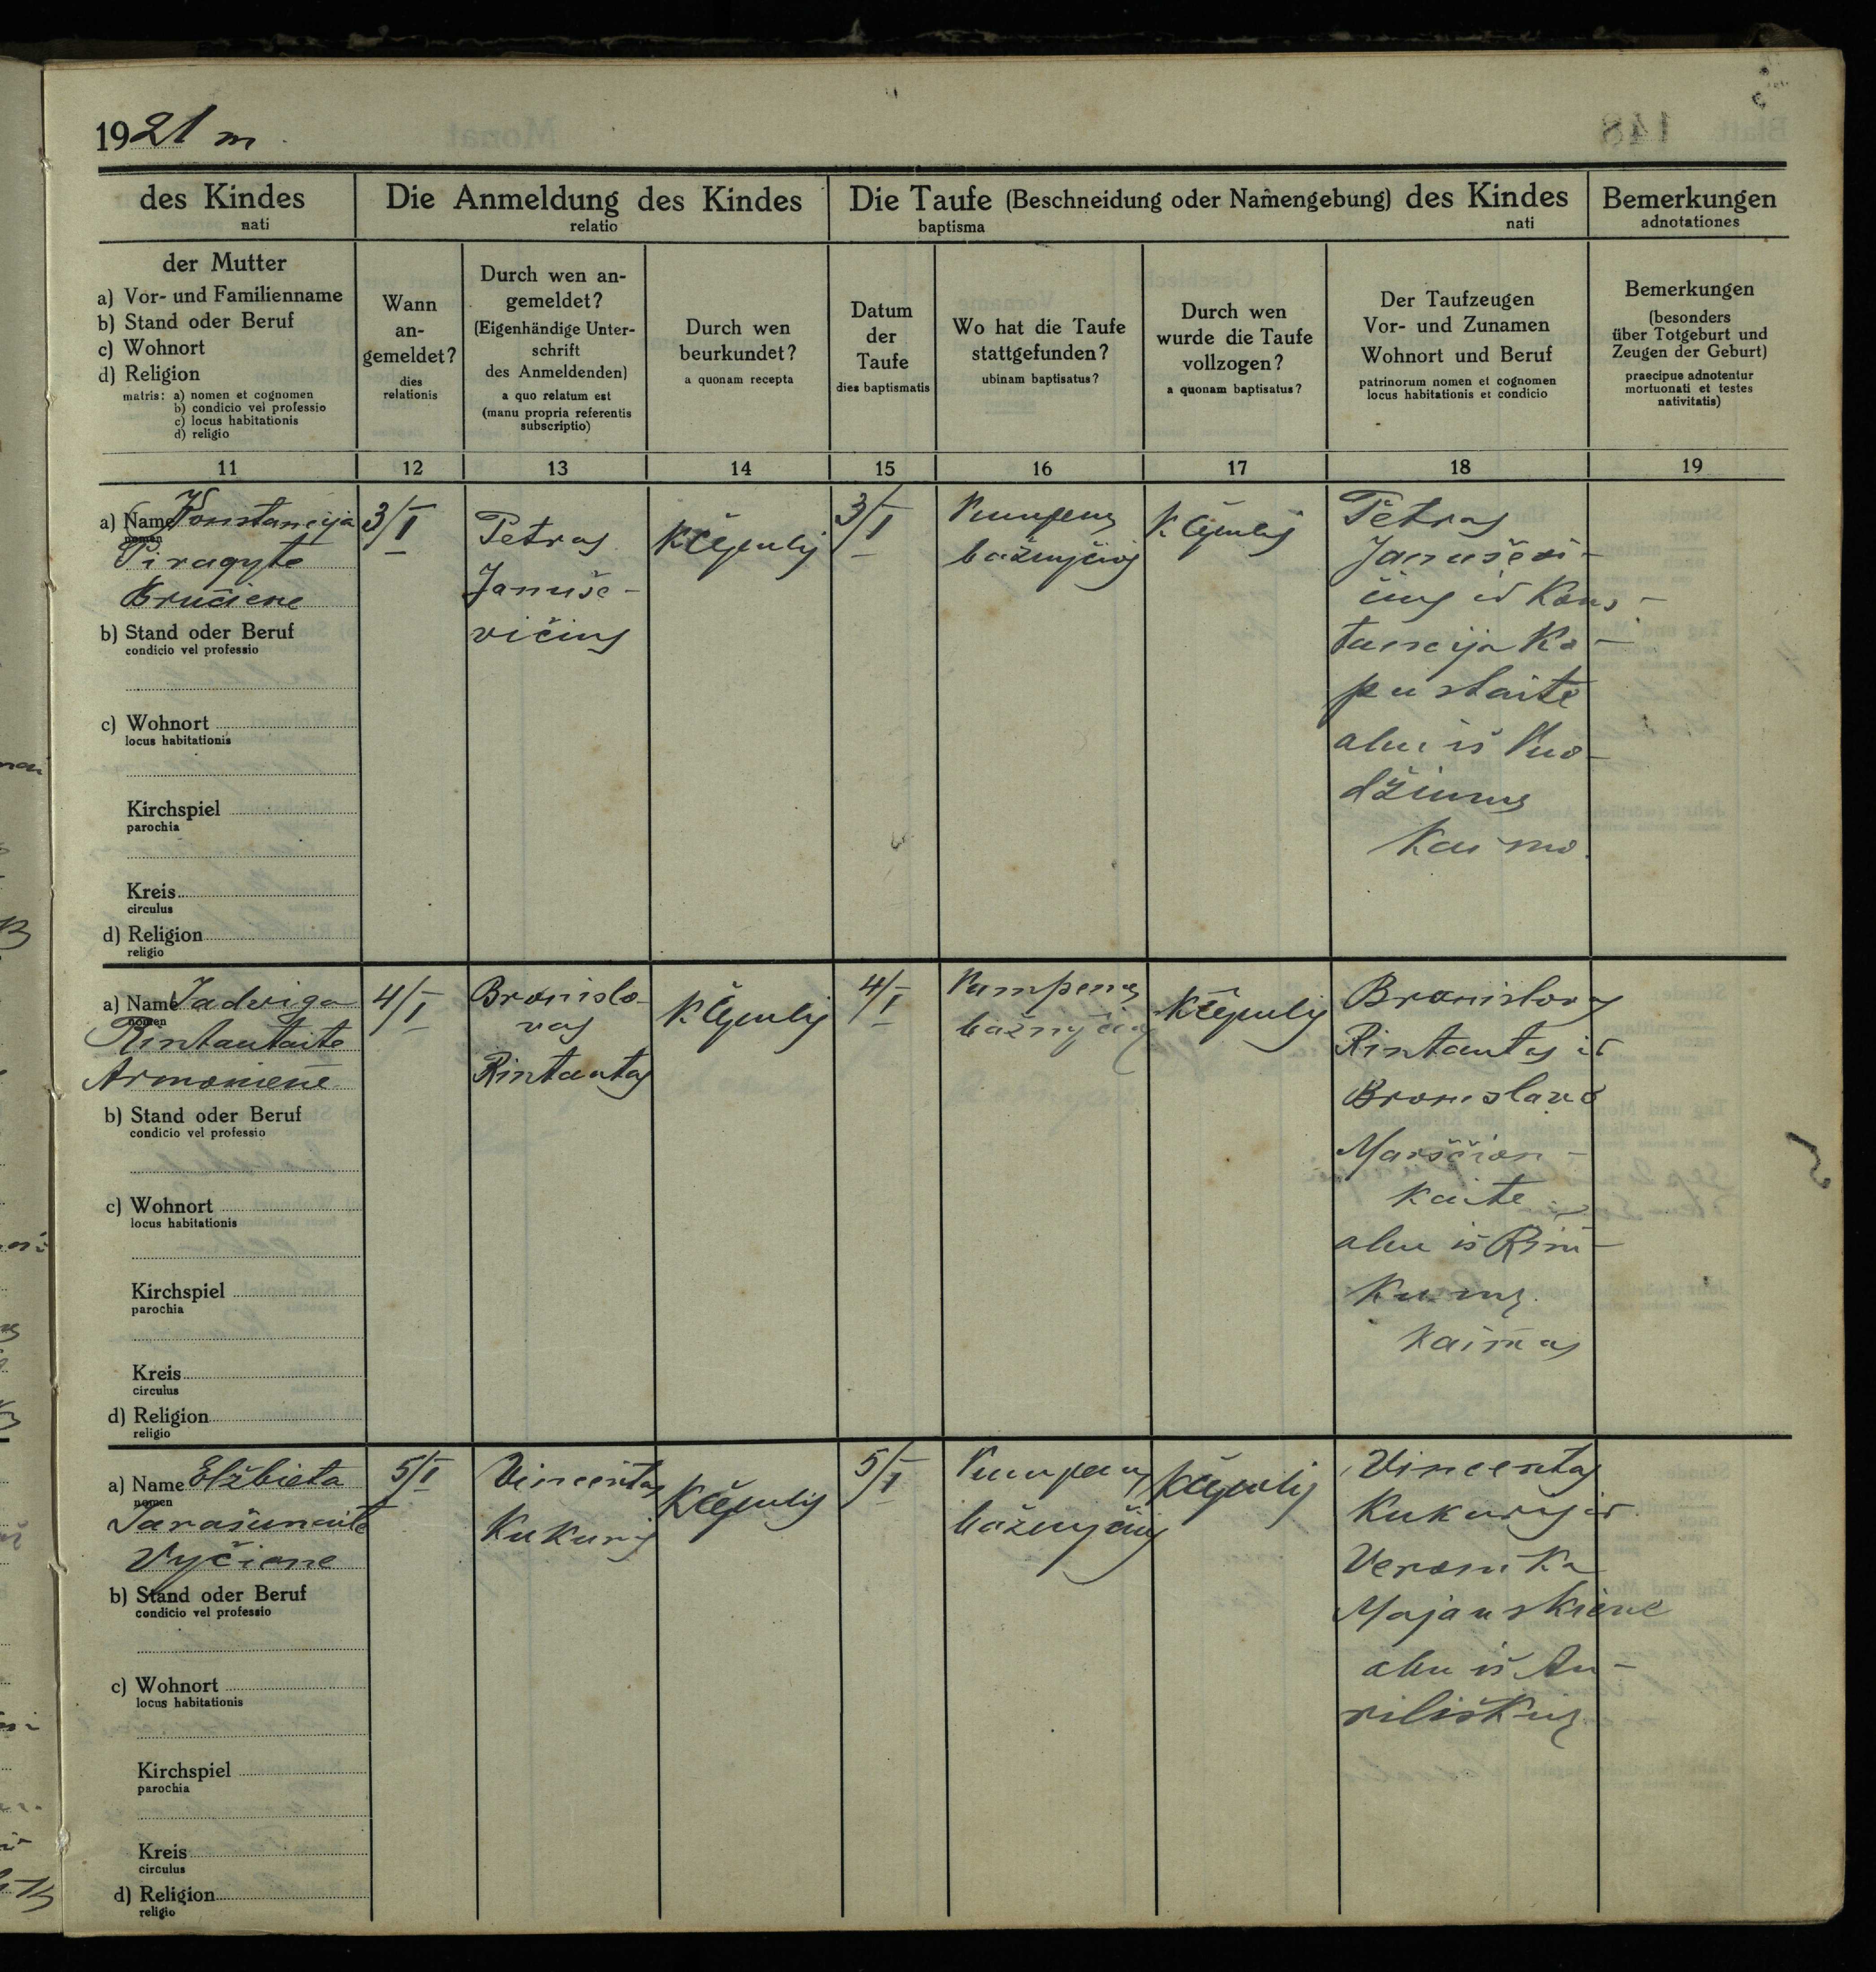 1921 m.
des Kindes
nati
Die Anmeldung des Kindes
relatio
Die Taufe (Beschneidung oder Namengebung) des Kindes
baptisma nati
Bemerkungen
adnotationes
der Mutter
a) Vor- und Familienname
b) Stand oder Beruf
c) Wohnort
d) Religion
matris: a) nomen et cognomen
b) condicio vel professio
c) locus habitationis
d) religio
Wann
an-
gemeldet?
dies
relationis
Durch wen an-
gemeldet?
(Eigenhändige Unter-
schrift
des Anmeldenden)
a quo relatum est
(manu propria referentis
subscriptio)
Durch wen
beurkundet?
a quonam recepta
Datum
der
Taufe
dies baptismatis
Wo hat die Taufe
stattgefunden?
ubinam baptisatus?
Durch wen
wurde die Taufe
vollzogen?
a quonam baptisatus?
Der Taufzeugen
Vor- und Zunamen
Wohnort und Beruf
patrinorum nomen et cognomen
locus habitationis et condicio
Bemerkungen
(besonders
über Totgeburt und
Zeugen der Geburt)
praecipue adnotentur
mortuonati et testes
nativitatis)
11 12 13 14 15 16 17 18 19
a) Name Konstancija
nomen
Piragyte
Bručiene
b) Stand oder Beruf
condicio vel professio
c) Wohnort
locus habitationis
Kirchspiel
parochia
Kreis
circulus
d) Religion
religio
3/I
Petras
Januše-
vičius
K Čepulis
3/I
bažnyčioj
K Čepulis
Petras
Januševi-
čius ir Kons-
tancija Ka-
pustaite
abu iš
kaimo.
a) Name Jadviga
nomen
Rintautaite
Armoniene
b) Stand oder Beruf
condicio vel professio
c) Wohnort
locus habitationis
Kirchspiel
parochia
Kreis
circulus
d) Religion
religio
4/I
Bronislo-
vas
Rintautas
K Čepulis
4/I
Pumpenų
bažnyčioj
K Čepulis
Bronislovas
Rintautas ir
Bronislava
Marščion-
kaite
abu iš Rin-
kunų
kaimas
a) Name Elžbieta
nomen
Tarašunaite
Vyčiene
b) Stand oder Beruf
condicio vel professio
c) Wohnort
locus habitationis
Kirchspiel
parochia
Kreis
circulus
d) Religion
religio
5/I
Vincentas
Kukuris
K Čepulis
5/I
Pumpenų
bažnyčioj
K Čepulis
Vincentas
Kukurys ir
Veronika
Majauskiene
abu iš